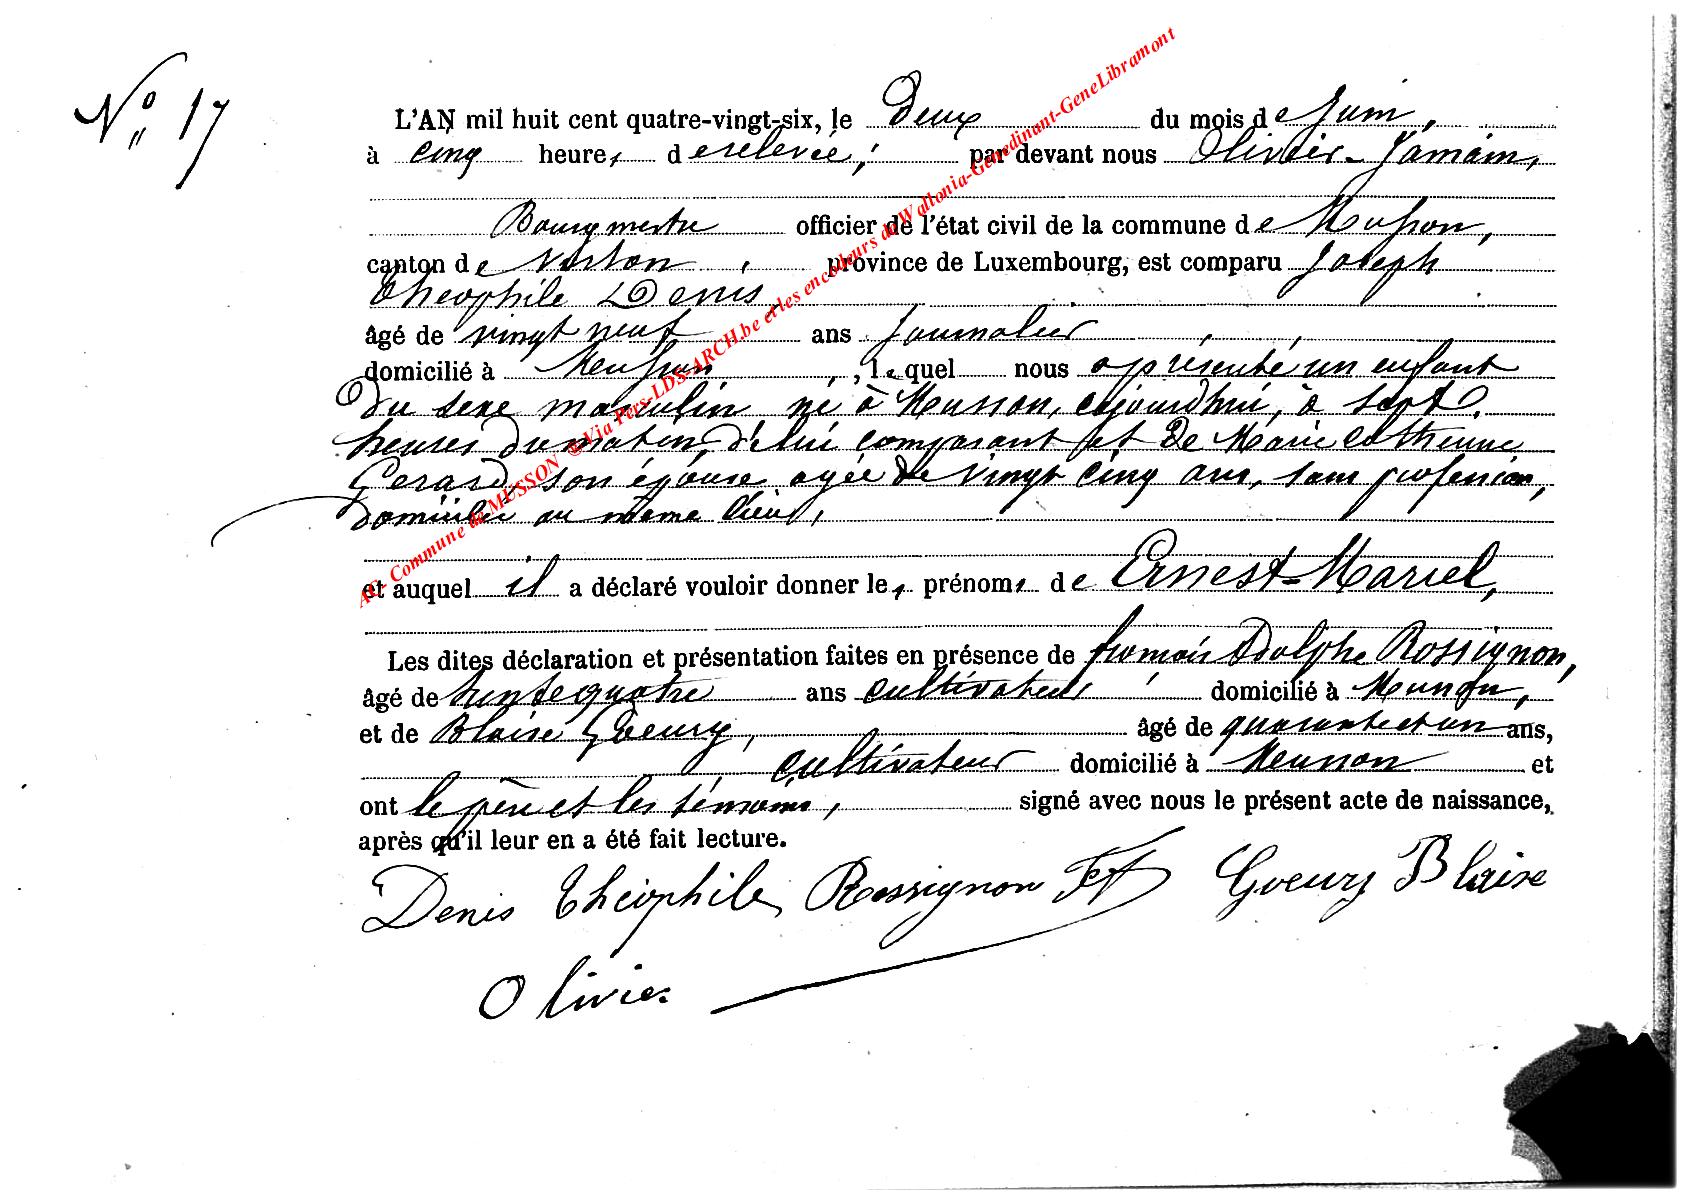 N° 17
L'AN mil huit cent quatre-vingt-six, le Deux du mois de Juin,
à cinq heures de relevée, par devant nous Olivier - Jamain,
Bourgmestre officier de l'état civil de la commune de Musson,
canton de Virton, province de Luxembourg, est comparu Joseph
Théophile Denis,
âgé de vingt neuf ans Journalier
domicilié à Musson, lequel nous a présenté un enfant
Du sexe masculin né à Musson, aujourdhui, à sept
heures du matin, de lui comparant et de Marie Catherine
Gerard, son épouse agée de vingt cinq ans, sans profession,
domiciliée au même lieu,
et auquel il a déclaré vouloir donner les prénoms de Ernest-Marcel,
Les dites déclaration et présentation faites en présence de françois Adolphe Rossignon,
âgé de trente quatre ans cultivateur, domicilié à Musson,
et de Blaise Goeury, âgé de quarante et un ans,
cultivateur domicilié à Musson et
ont le père et les témoins, signé avec nous le présent acte de naissance,
après qu'il leur en a été fait lecture.
Denis Théophile Rossignon Goeury Blaise
Olivier
AG Commune de MUSSON @ Via Pers-LDS-ARCH.be et les encodeurs de Wallonia-Genedinant-GeneLibramont